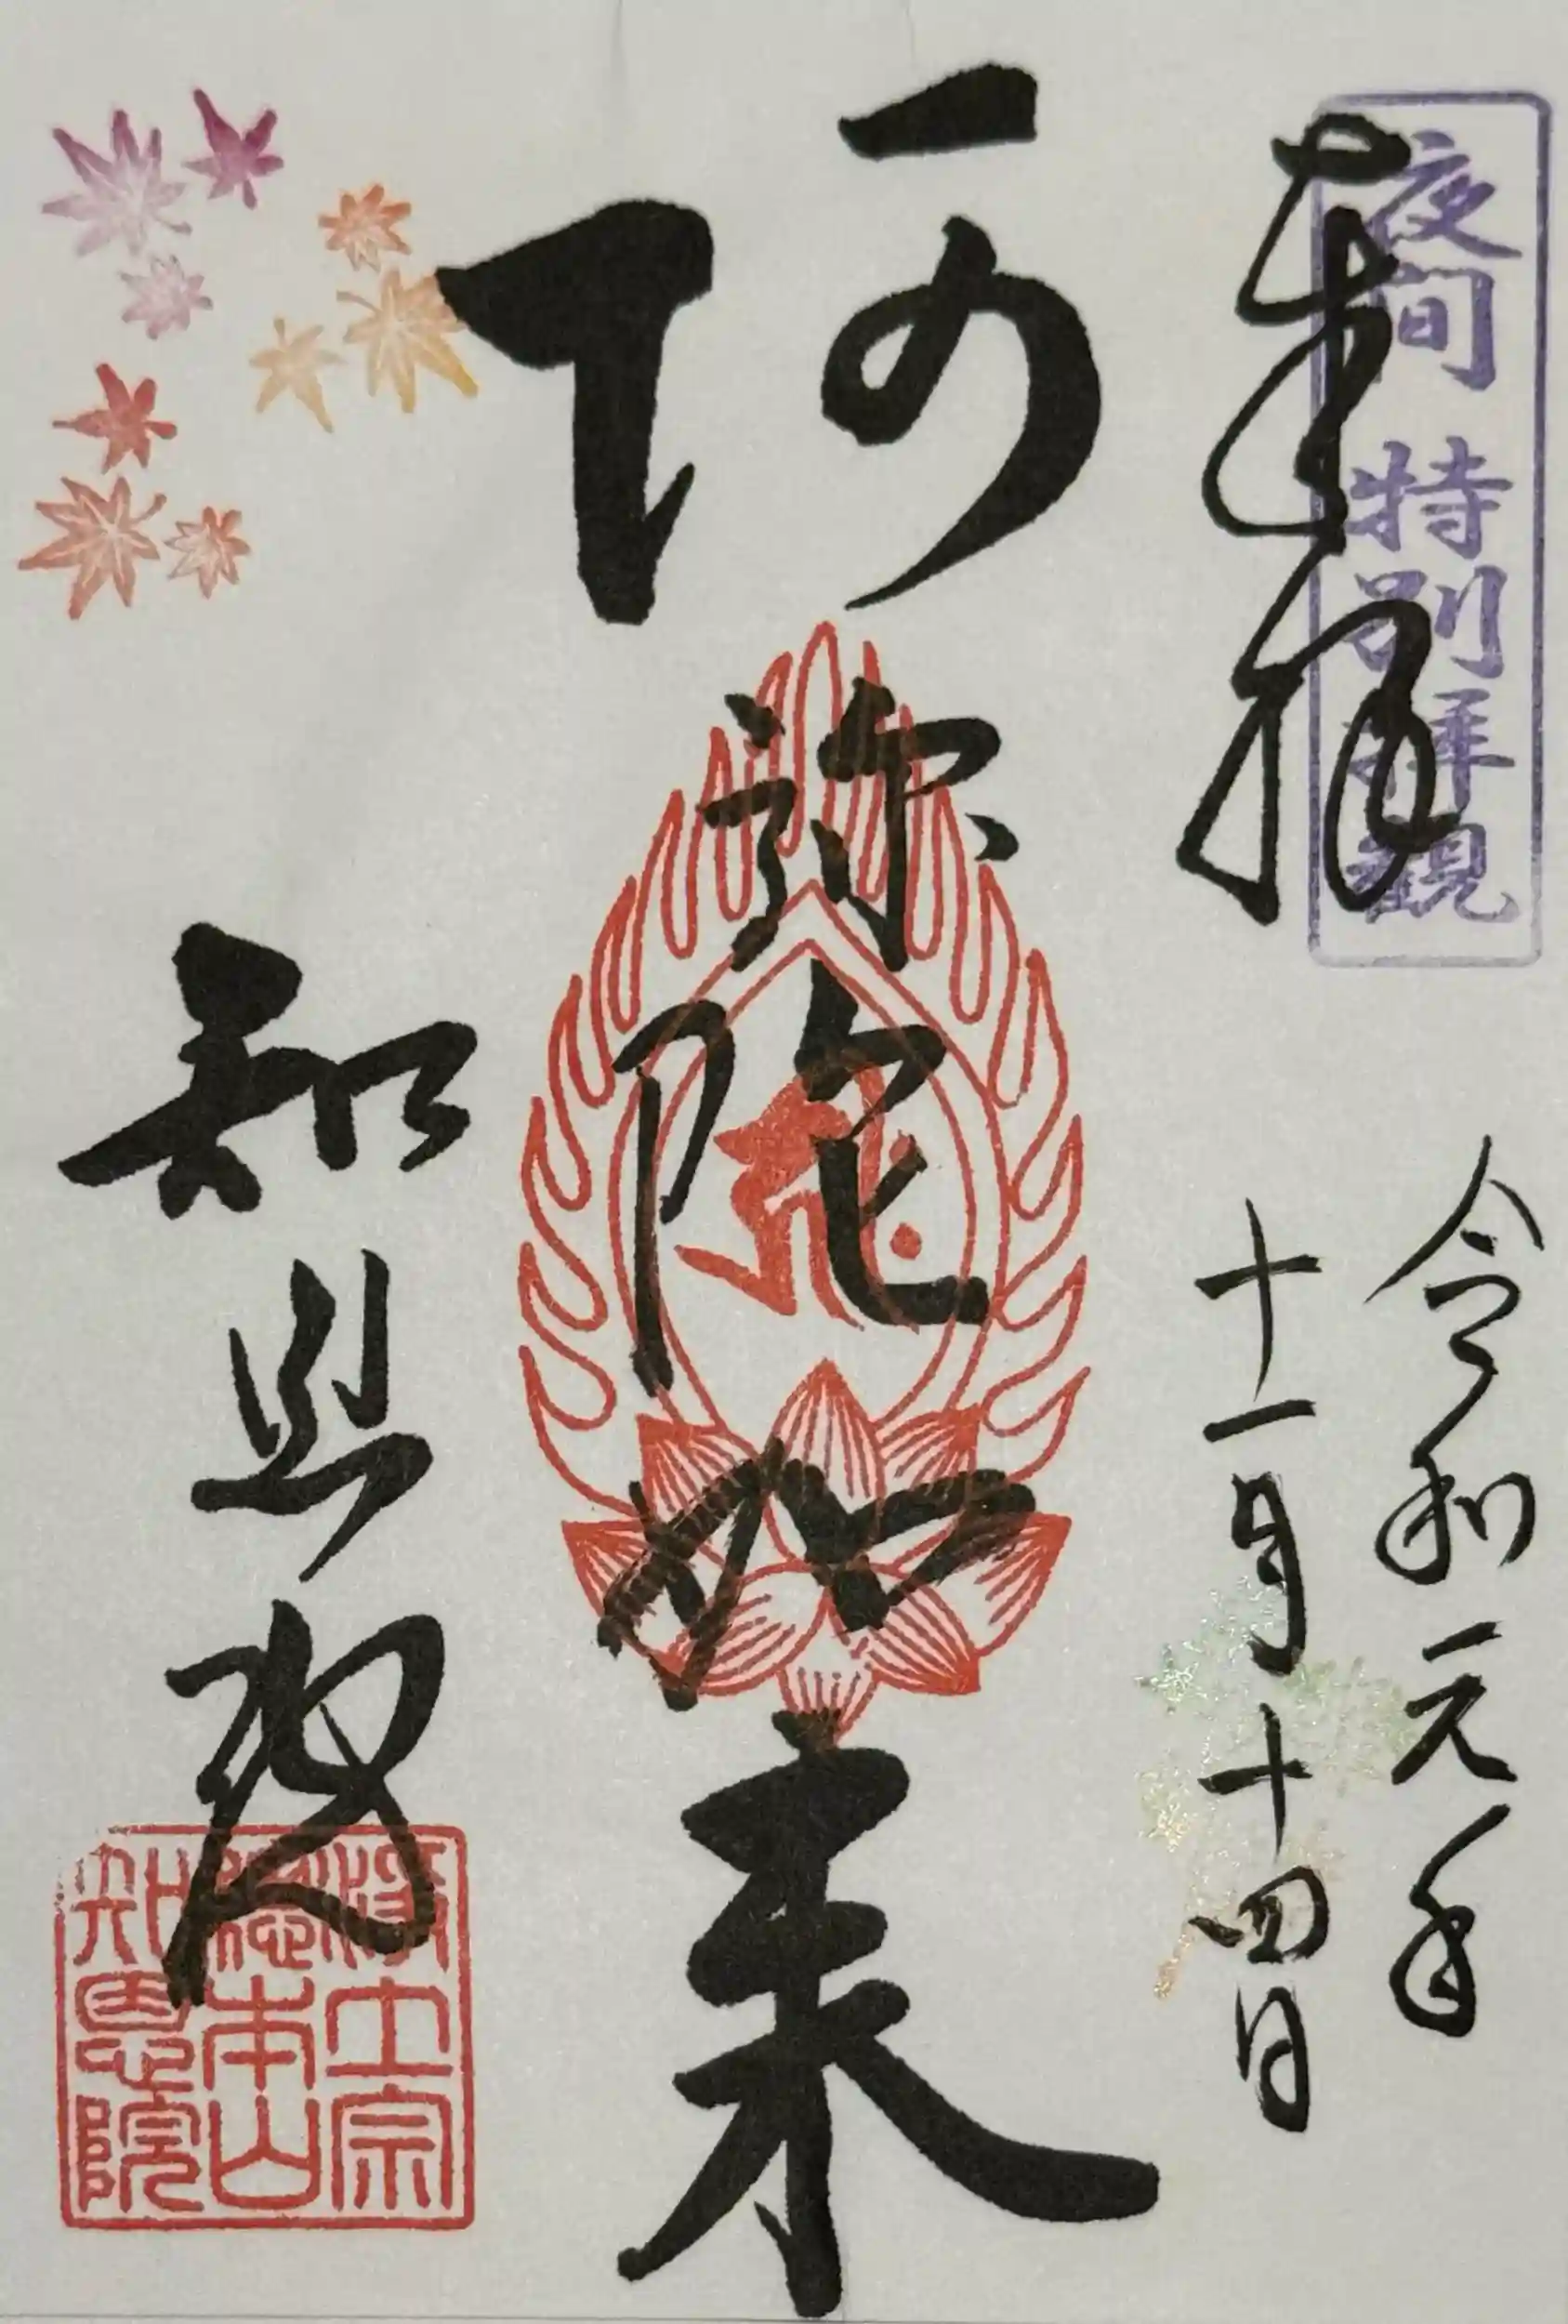 夜間 特別拝観
奉拝
令和元年
十一月十四日
阿弥陀如来
知恩院
浄土宗
総本山
知恩院